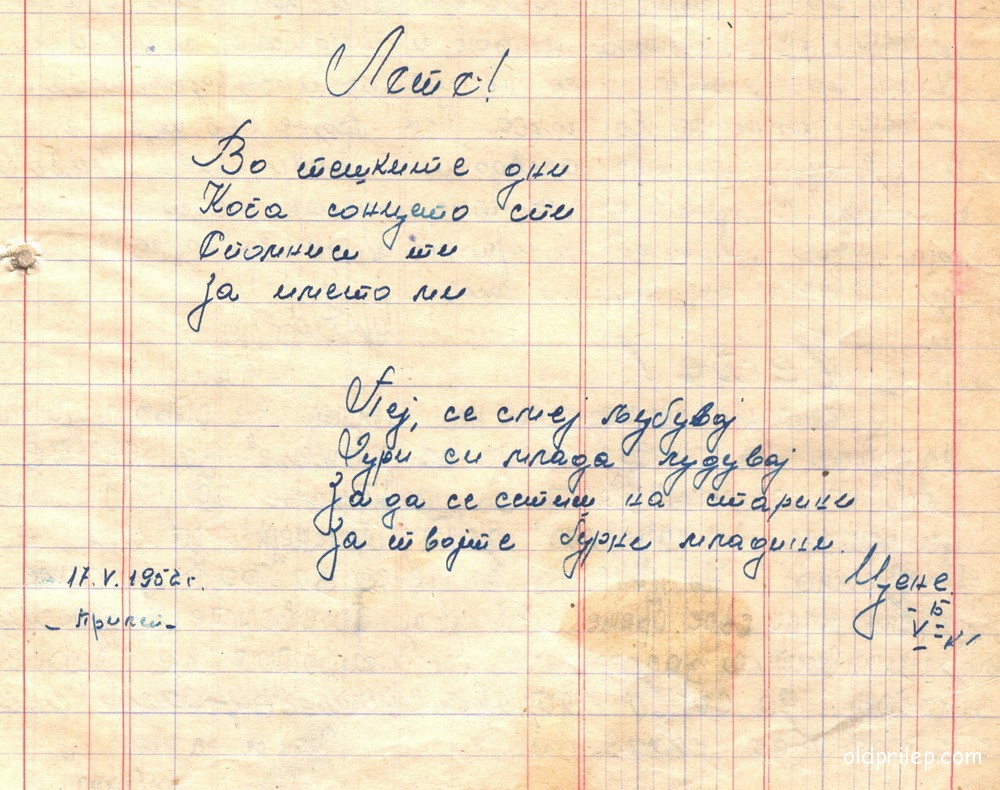 Лете!
Во тешките дни
Кога сонцето спи
Спомниси ти
За името ми
Пеј, се смеј љубувај
Дури си млада лудувај
За да се сетиш на старини
За твојте бурни младини.
17. V. 1952 г.
- Прилеп -
Цене
V
oldprilep.com